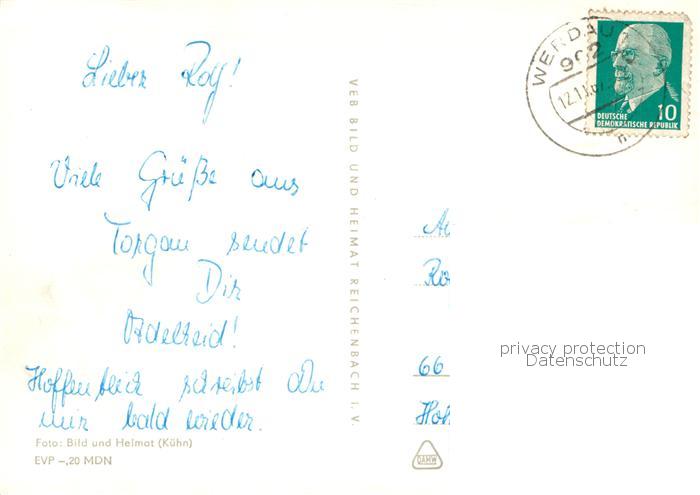 Lieber Rolf!
Viele Grüße aus
Torgau sendet
Dir
Adelheid!
Hoffentlich schreibst Du
mir bald wieder.
Foto: Bild und Heimat (Kühn)
EVP –,20 MDN
VEB BILD UND HEIMAT REICHENBACH I. V.
WERDAU
962
12.11.67
DEUTSCHE
DEMOKRATISCHE REPUBLIK
10
66
privacy protection
Datenschutz
DAMW